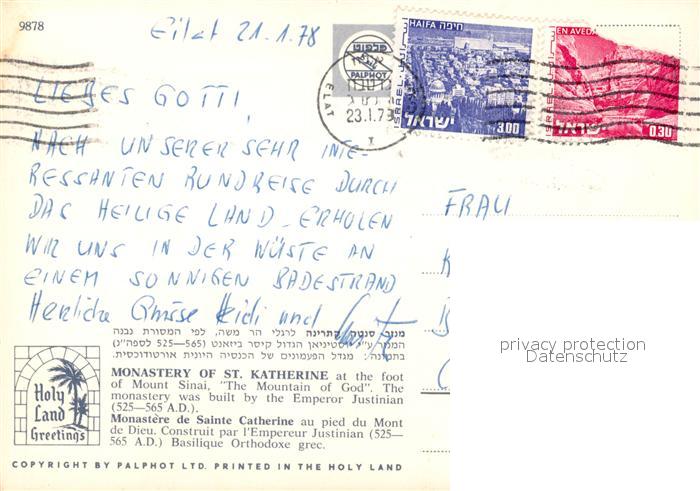 9878
Eilat 21.1.78
פלפוט
PALPHOT
ELAT
23.1.78
HAIFA חיפה
ISRAEL
ישראל
3.00
EN AVEDAT
ISRAEL
ישראל
0.30
LIEBES GOTTI,
NACH UNSERER SEHR INTE-
RESSANTEN RUNDREISE DURCH
DAS HEILIGE LAND ERHOLEN
WIR UNS IN DER WÜSTE AN
EINEM SONNIGEN BADESTRAND
Herzliche Grüsse Heidi und
FRAU
privacy protection
Datenschutz
מנזר סנטה קתרינה לרגלי הר משה, לפי המסורת נבנה
המנזר ע"י יוסטיניאן הגדול קיסר ביזאנט (565—525 לספה"נ)
בתמונה: מגדל הפעמונים של הכנסיה היונית אורטודוכסית.
Holy
Land
Greetings
MONASTERY OF ST. KATHERINE at the foot
of Mount Sinai, "The Mountain of God". The
monastery was built by the Emperor Justinian
(525—565 A.D.).
Monastère de Sainte Catherine au pied du Mont
de Dieu. Construit par l'Empereur Justinian (525—
565 A.D.) Basilique Orthodoxe grec.
COPYRIGHT BY PALPHOT LTD. PRINTED IN THE HOLY LAND